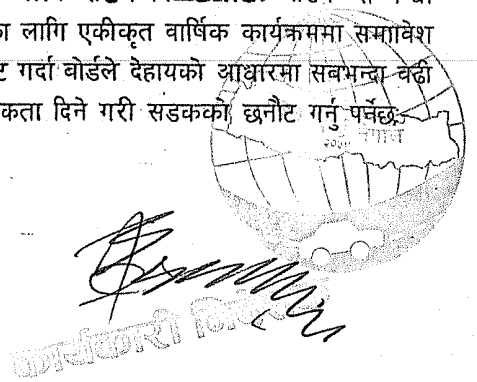 लागि एकीकृत वार्षिक कार्यक्रममा समावेश
गर्दा बोर्डले देहायको आधारमा सबभन्दा बढी
दिने गरी सडकको छनौट गर्नु पर्नेछः
नेपाल
कार्यकारी